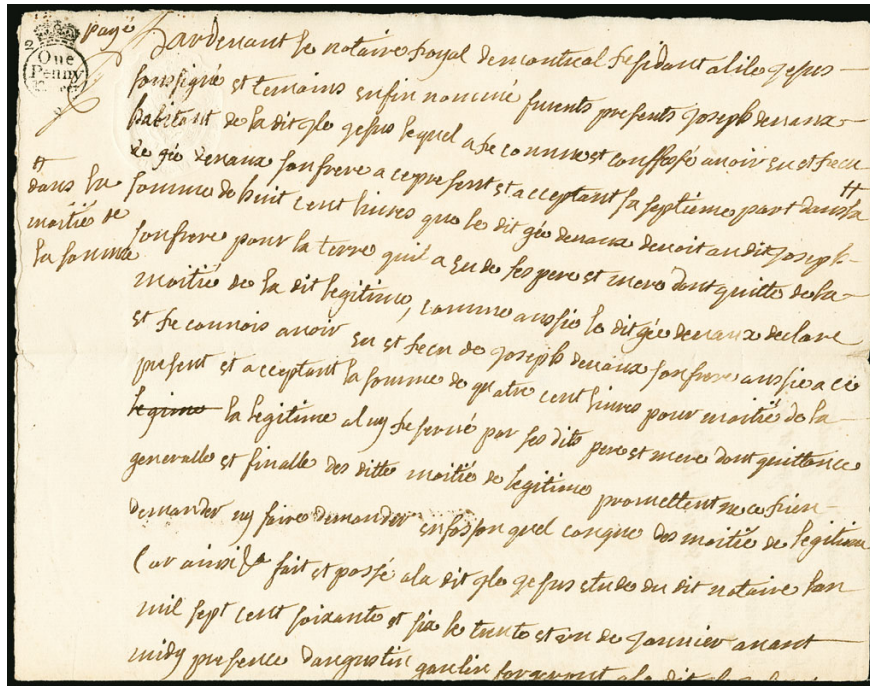 payé
One
Penny
pardenant le notaire Royal demontreal Residant alile jesus
soussigné et temoins enfin nommé furents presents joseph denaux
habitant de la dit jle jesus lequel a Reconnu et confessé auoir Eu et Recu
de gée denaux son frere a ce present et acceptant sa septieme part dans la
somme de huit cent liures que le dit gée denaux deuoit au dit joseph
son frere pour la terre quil a Eu de ses pere et mere dont quitte de la
moitié de la dit legitime, comme aussie le dit gée denaux declare
et Reconnois auoir Eu et Recu de joseph denaux son frere aussie a ce
present et acceptant la somme de quatre cent liures pour moitié de la
legime la legitime a luy Reserué par ses dits pere et mere dont quittance
generalle et finalle des ditte moitié de legitime promettent ne ce Rien
demander ny faire demander en fasson quel conque des moitié de legitime
Car ainsi fait et passé a la dit jle jesus etude du dit notaire lan
mil sept cent soixante et six le trente et un de januier auant
midy presence daugustin forgeront a la dit
dans la
moitié de
la somme